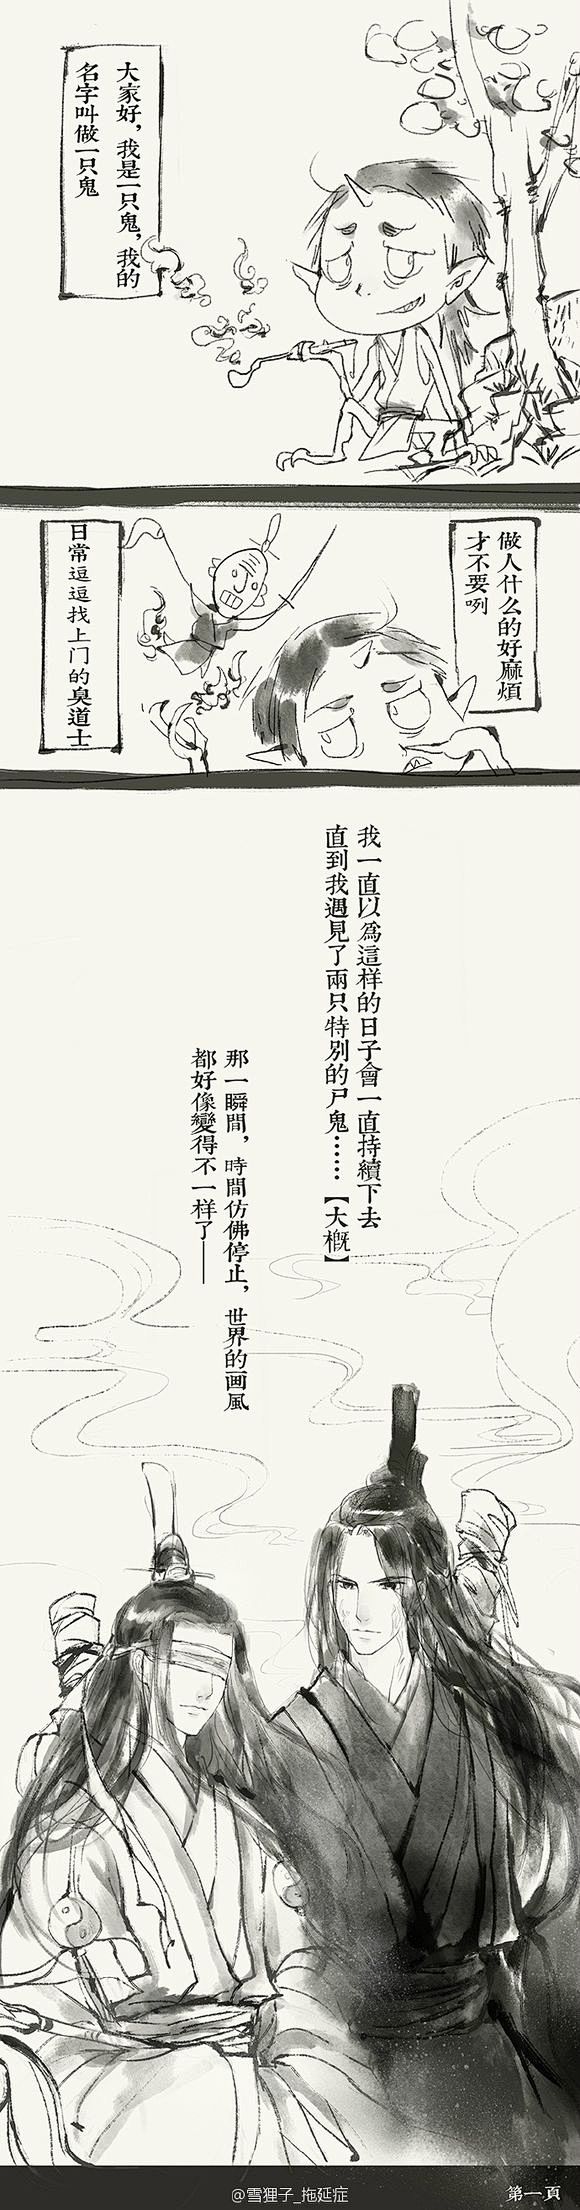 大家好，我是一只鬼，我的
名字叫做一只鬼
做人什么的好麻煩
才不要咧
日常逗逗找上门的臭道士
我一直以為這样的日子會一直持續下去
直到我遇見了兩只特別的尸鬼……【大概】
那一瞬間，時間仿佛停止，世界的画風
都好像變得不一样了——
@雪狸子_拖延症
第一頁